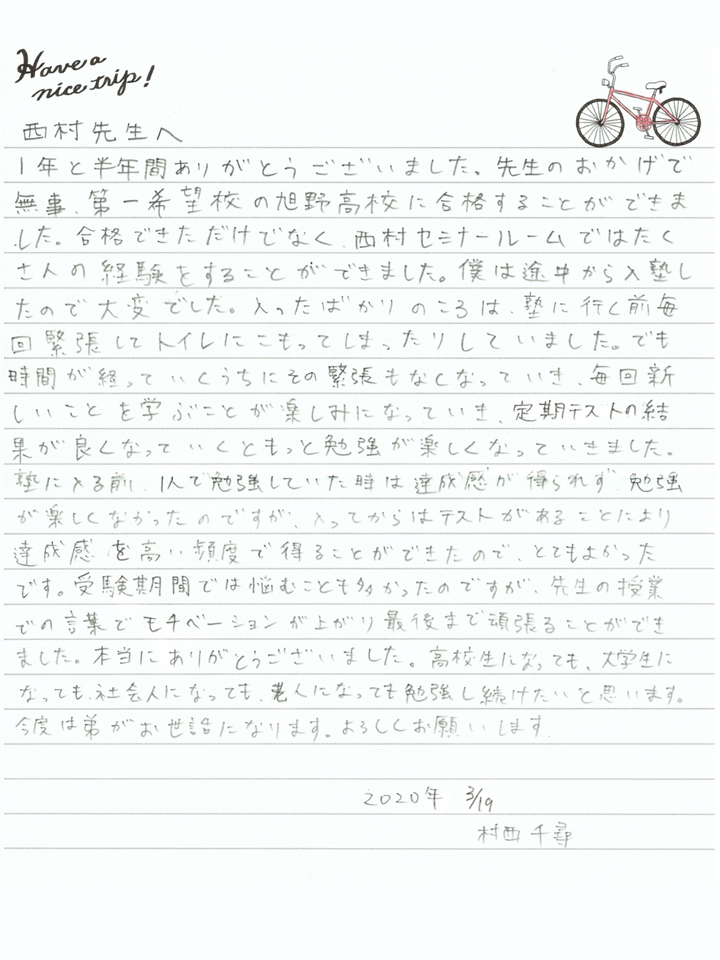 Have a
nice trip!
西村先生へ
1年と半年間ありがとうございました。先生のおかげで
無事、第一希望校の旭野高校に合格することができま
した。合格できただけでなく、西村セミナールームではたく
さんの経験をすることができました。僕は途中から入塾し
たので大変でした。入ったばかりのころは、塾に行く前毎
回緊張してトイレにこもってしまったりしていました。でも
時間が経っていくうちにその緊張もなくなっていき、毎回新
しいことを学ぶことが楽しみになっていき、定期テストの結
果が良くなっていくともっと勉強が楽しくなっていきました。
塾に入る前、1人で勉強していた時は達成感が得られず、勉強
が楽しくなかったのですが、入ってからはテストがあることにより
達成感を高い頻度で得ることができたので、とてもよかった
です。受験期間では悩むことも多かったのですが、先生の授業
での言葉でモチベーションが上がり最後まで頑張ることができ
ました。本当にありがとうございました。高校生になっても、大学生に
なっても、社会人になっても、老人になっても勉強し続けたいと思います。
今度は弟がお世話になります。よろしくお願いします。
2020年 3/19
村西千尋